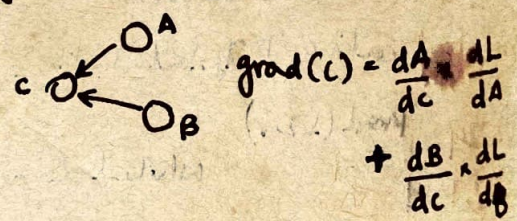 A
C
B
grad(c) = dA/dc × dL/dA
+ dB/dc × dL/dB